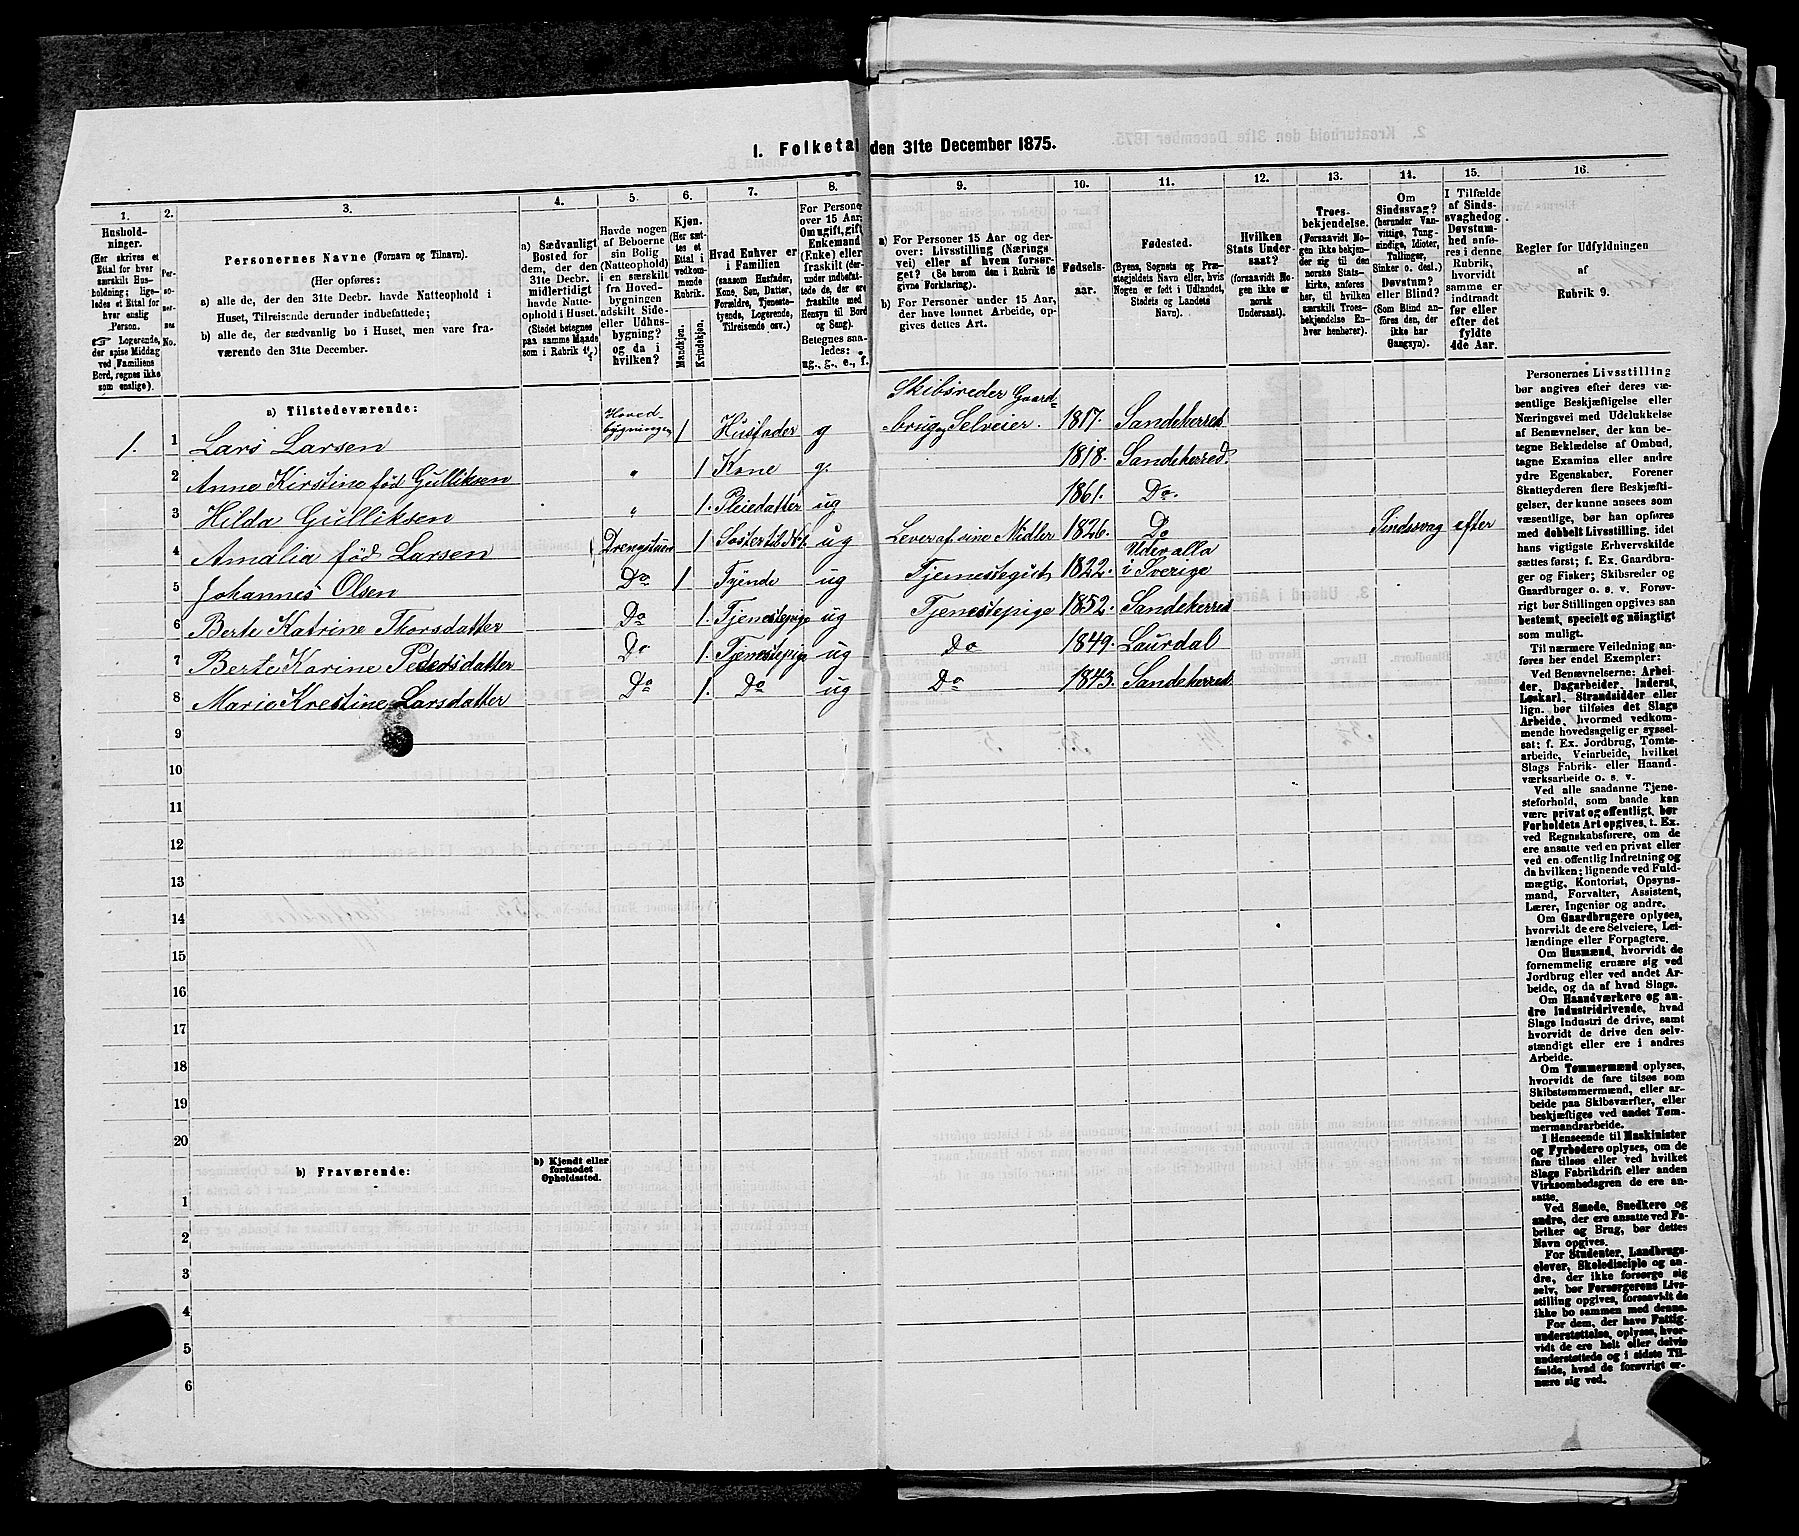 1. Folketal den 31te December 1875.
1. 2. 3. 4. 5. 6. 7. 8. 9. 10. 11. 12. 13. 14. 15. 16.
Hushold-
ninger.
(Her skrives et
Ettal for hver
særskilt Hus-
holdning; lige-
ledes et Ettal for
hver enslig
Person.
☞ Logerende,
der spise Middag
ved Familiens
Bord, regnes ikke
som enslige).
Per-
so-
ner-
nes
No.
Personernes Navne (Fornavn og Tilnavn).
(Her opføres:
a) alle de, der den 31te Decbr. havde Natteophold i
Huset, Tilreisende derunder indbefattede;
b) alle de, der sædvanlig bo i Huset, men vare fra-
værende den 31te December.
a) Sædvanligt
Bosted for
dem, der den
31te Decbr.
midlertidigt
havde Natte-
ophold i Huset.
(Stedet betegnes
paa samme Maade
som i Rubrik 11)
Havde nogen
af Beboerne
sin Bolig
(Natteophold)
i en særskilt
fra Hoved-
bygningen
adskilt Side-
eller Udhus-
bygning?
og da i
hvilken?
Kjøn.
(Her sæt-
tes et
Ettal i
vedkom-
mende
Rubrik.
Mandkjøn.
Kvindekjøn.
Hvad Enhver er
i Familien
(saasom Husfader,
Kone, Søn, Datter,
Forældre, Tjeneste-
tyende, Logerende,
Tilreisende osv.)
For Personer
over 15 Aar:
Om ugift, gift,
Enkemand
(Enke) eller
fraskilt (der-
under indbefat-
tede de, der ere
fraskilte med
Hensyn til Bord
og Seng).
Betegnes saa-
ledes:
ug., g., e., f.
a) For Personer 15 Aar og der-
over: Livsstilling (Nærings
vei) eller af hvem forsør-
get? (Se herom den i Rubrik 16
givne Forklaring).
b) For Personer under 15 Aar,
der have lønnet Arbeide, op-
gives dettes Art.
Fødsels-
aar.
Fødested.
(Byens, Sognets og Præ-
stegjeldets Navn eller, hvis
Nogen er født i Udlandet,
Stedets og Landets
Navn).
Hvilken
Stats Under-
saat?
(forsaavidt No-
gen ikke er
norsk
Undersaat).
Troes-
bekjendelse.
(Forsaavidt No-
gen ikke bekjen-
der sig til den
norske Stats-
kirke, anføres
her, til hvilken
særskilt Troes-
bekjendelse En-
hver henhører).
Om
Sindssvag?
(herunder Van-
vittige, Tung-
sindige, Idioter,
Tullinger,
Sinker o. desl.)
Døvstum?
eller Blind?
(Som Blind an-
føres den, der
ikke har
Gangsyn).
I Tilfælde
af Sinds-
svaghed og
Døvstum-
hed anfø-
res i denne
Rubrik,
hvorvidt
samme er
indtraadt
før eller
efter det
fyldte
4de Aar.
Regler for Udfyldningen
af
Rubrik 9.
a) Tilstedeværende:
1. 1 Lars Larsen Hoved-bygningen 1 Husfader g Skibsreder Gaard-brug Selveier. 1817. Sandeherred
2 Anne Kirstine fød Gulliksen " 1. Kone g. 1818. Sandeherred.
3 Hilda Gulliksen " 1. Pleiedatter ug 1861. Do.
4 Amalia fød Larsen Drengstuen 1 Søster til No 1. ug Lever af sine Midler 1826. Do Sindssvag efter
5 Johannes Olsen Do 1 Tyende ug Tjenestegut 1822. Uddevalla i Sverige
6 Berte Katrine Thorsdatter Do 1. Tjenestepige ug Tjenestepige 1852. Sandeherred
7 Berte Karine Pedersdatter Do 1. Tjenestepige ug Do 1849. Laurdal
8 Marie Krestine Larsdatter Do 1. Do ug Do 1843. Sandeherred.
9
10
11
12
13
14
15
16
17
18
19
20
b) Fraværende:
b) Kjendt eller
formodet
Opholdssted.
1
2
3
4
5
6
Personernes Livsstilling
bør angives efter deres væ-
sentlige Beskjæftigelse eller
Næringsvei med Udelukkelse
af Benævnelser, der kun be-
tegne Beklædelse af Ombud,
tagne Examina eller andre
ydre Egenskaber. Forener
Skatteyderen flere Beskjæfti-
gelser, der kunne ansees som
væsentlige, bør han opføres
med dobbelt Livsstilling, idet
hans vigtigste Erhvervskilde
sættes først; f. Ex. Gaardbru-
ger og Fisker; Skibsreder og
Gaardbruger o. s. v. Forøv-
rigt bør Stillingen opgives saa
bestemt, specielt og nøiagtigt
som muligt.
Til nærmere Veiledning an-
føres her endel Exempler:
Ved Benævnelserne: Arbei-
der, Dagarbeider, Inderst,
Løskarl, Strandsidder eller
lign. bør tilføies det Slags
Arbeide, hvormed vedkom-
mende hovedsagelig er syssel-
sat; f. Ex. Jordbrug, Tomte-
arbeide, Veiarbeide, hvilket
Slags Fabrik- eller Haand-
værksarbeide o. s. v.
Ved alle saadanne Tjene-
steforhold, som baade kan
være privat og offentligt, bør
Forholdets Art opgives, t. Ex.
ved Regnskabsførere, om de
ere ansatte ved en privat eller
ved en offentlig Indretning og
da hvilken; lignende ved Fuld-
mægtig, Kontorist, Opsyns-
mand, Forvalter, Assistent,
Lærer, Ingeniør og andre.
Om Gaardbrugere oplyses,
hvorvidt de ere Selveiere, Lei-
lændinge eller Forpagtere.
Om Husmænd, hvorvidt de
fornemmelig ernære sig ved
Jordbrug eller ved andet Ar-
beide, og da af hvad Slags.
Om Haandværkere og an-
dre Industridrivende, hvad
Slags Industri de drive, samt
hvorvidt de drive den selv-
stændigt eller ere i andres
Arbeide.
Om Tømmermænd oplyses,
hvorvidt de fare tilsøs som
Skibstømmermænd, eller ar-
beide paa Skibsværfter, eller
beskjæftiges ved andet Tøm-
mermandsarbeide.
I Henseende til Maskinister
og Fyrbødere oplyses, om de
fare tilsøs eller ved hvilket
Slags Fabrikdrift eller anden
Virksomhedsgren de ere an-
satte.
Ved Smede, Snedkere og
andre, der ere ansatte ved Fa-
briker og Brug, bør dettes
Navn opgives.
For Studenter, Landbrugs-
elever, Skoledisciple og an-
dre, der ikke forsørge sig
selv, bør Forsørgerens Livs-
stilling opgives, forsaavidt de
ikke bo sammen med denne.
For dem, der have Fattig-
understøttelse, oplyses, hvor-
vidt de ere helt eller delvis
understøttede og i sidste Til-
fælde, hvad de forøvrigt er-
nære sig ved.